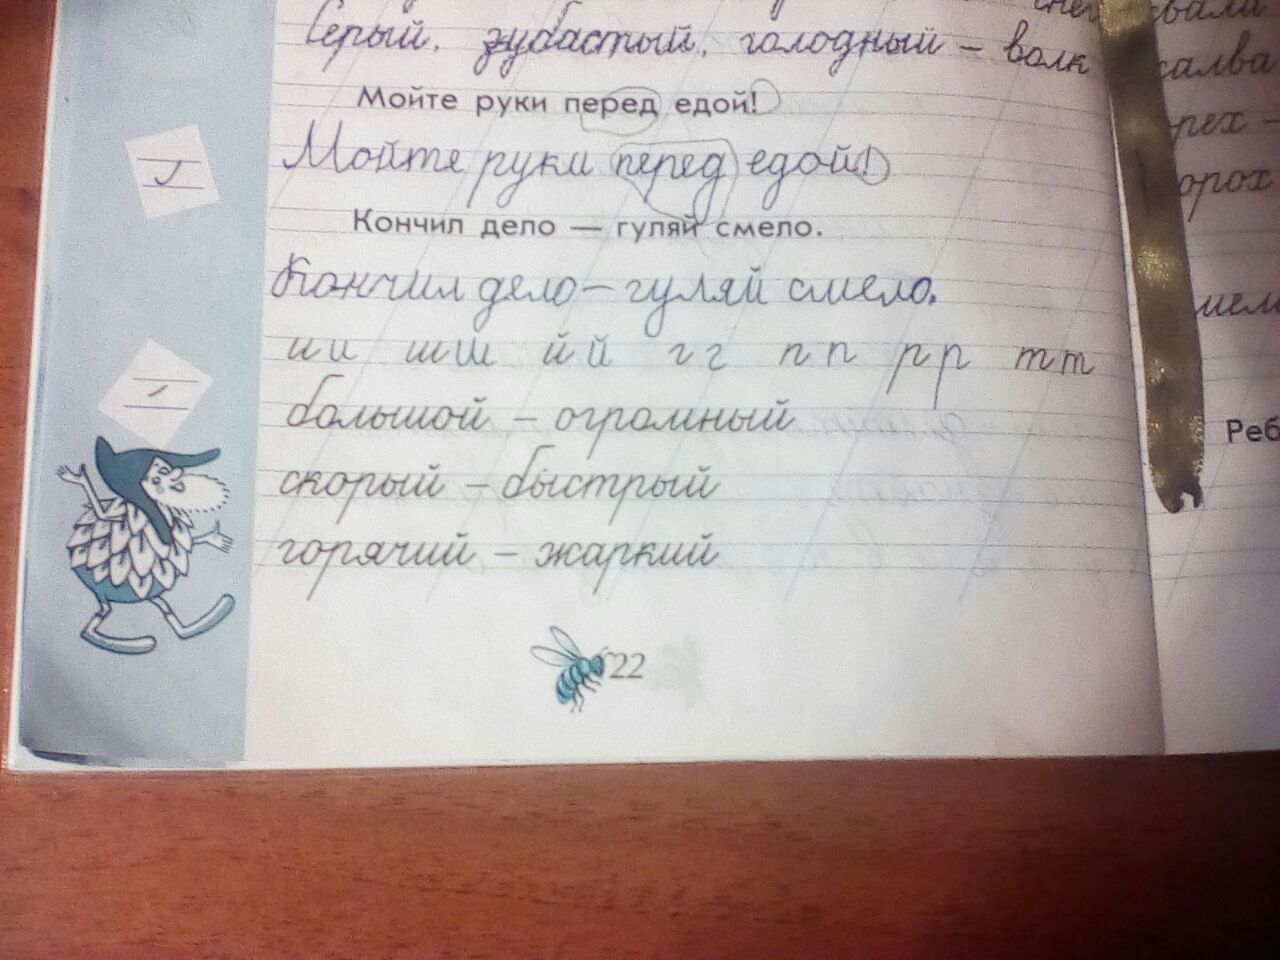 Серый, зубастый, голодный – волк
Мойте руки перед едой!
Мойте руки перед едой!
Кончил дело — гуляй смело.
Кончил дело – гуляй смело.
и и ш ш й й г г п п р р т т
большой – огромный
скорый – быстрый
горячий – жаркий
22